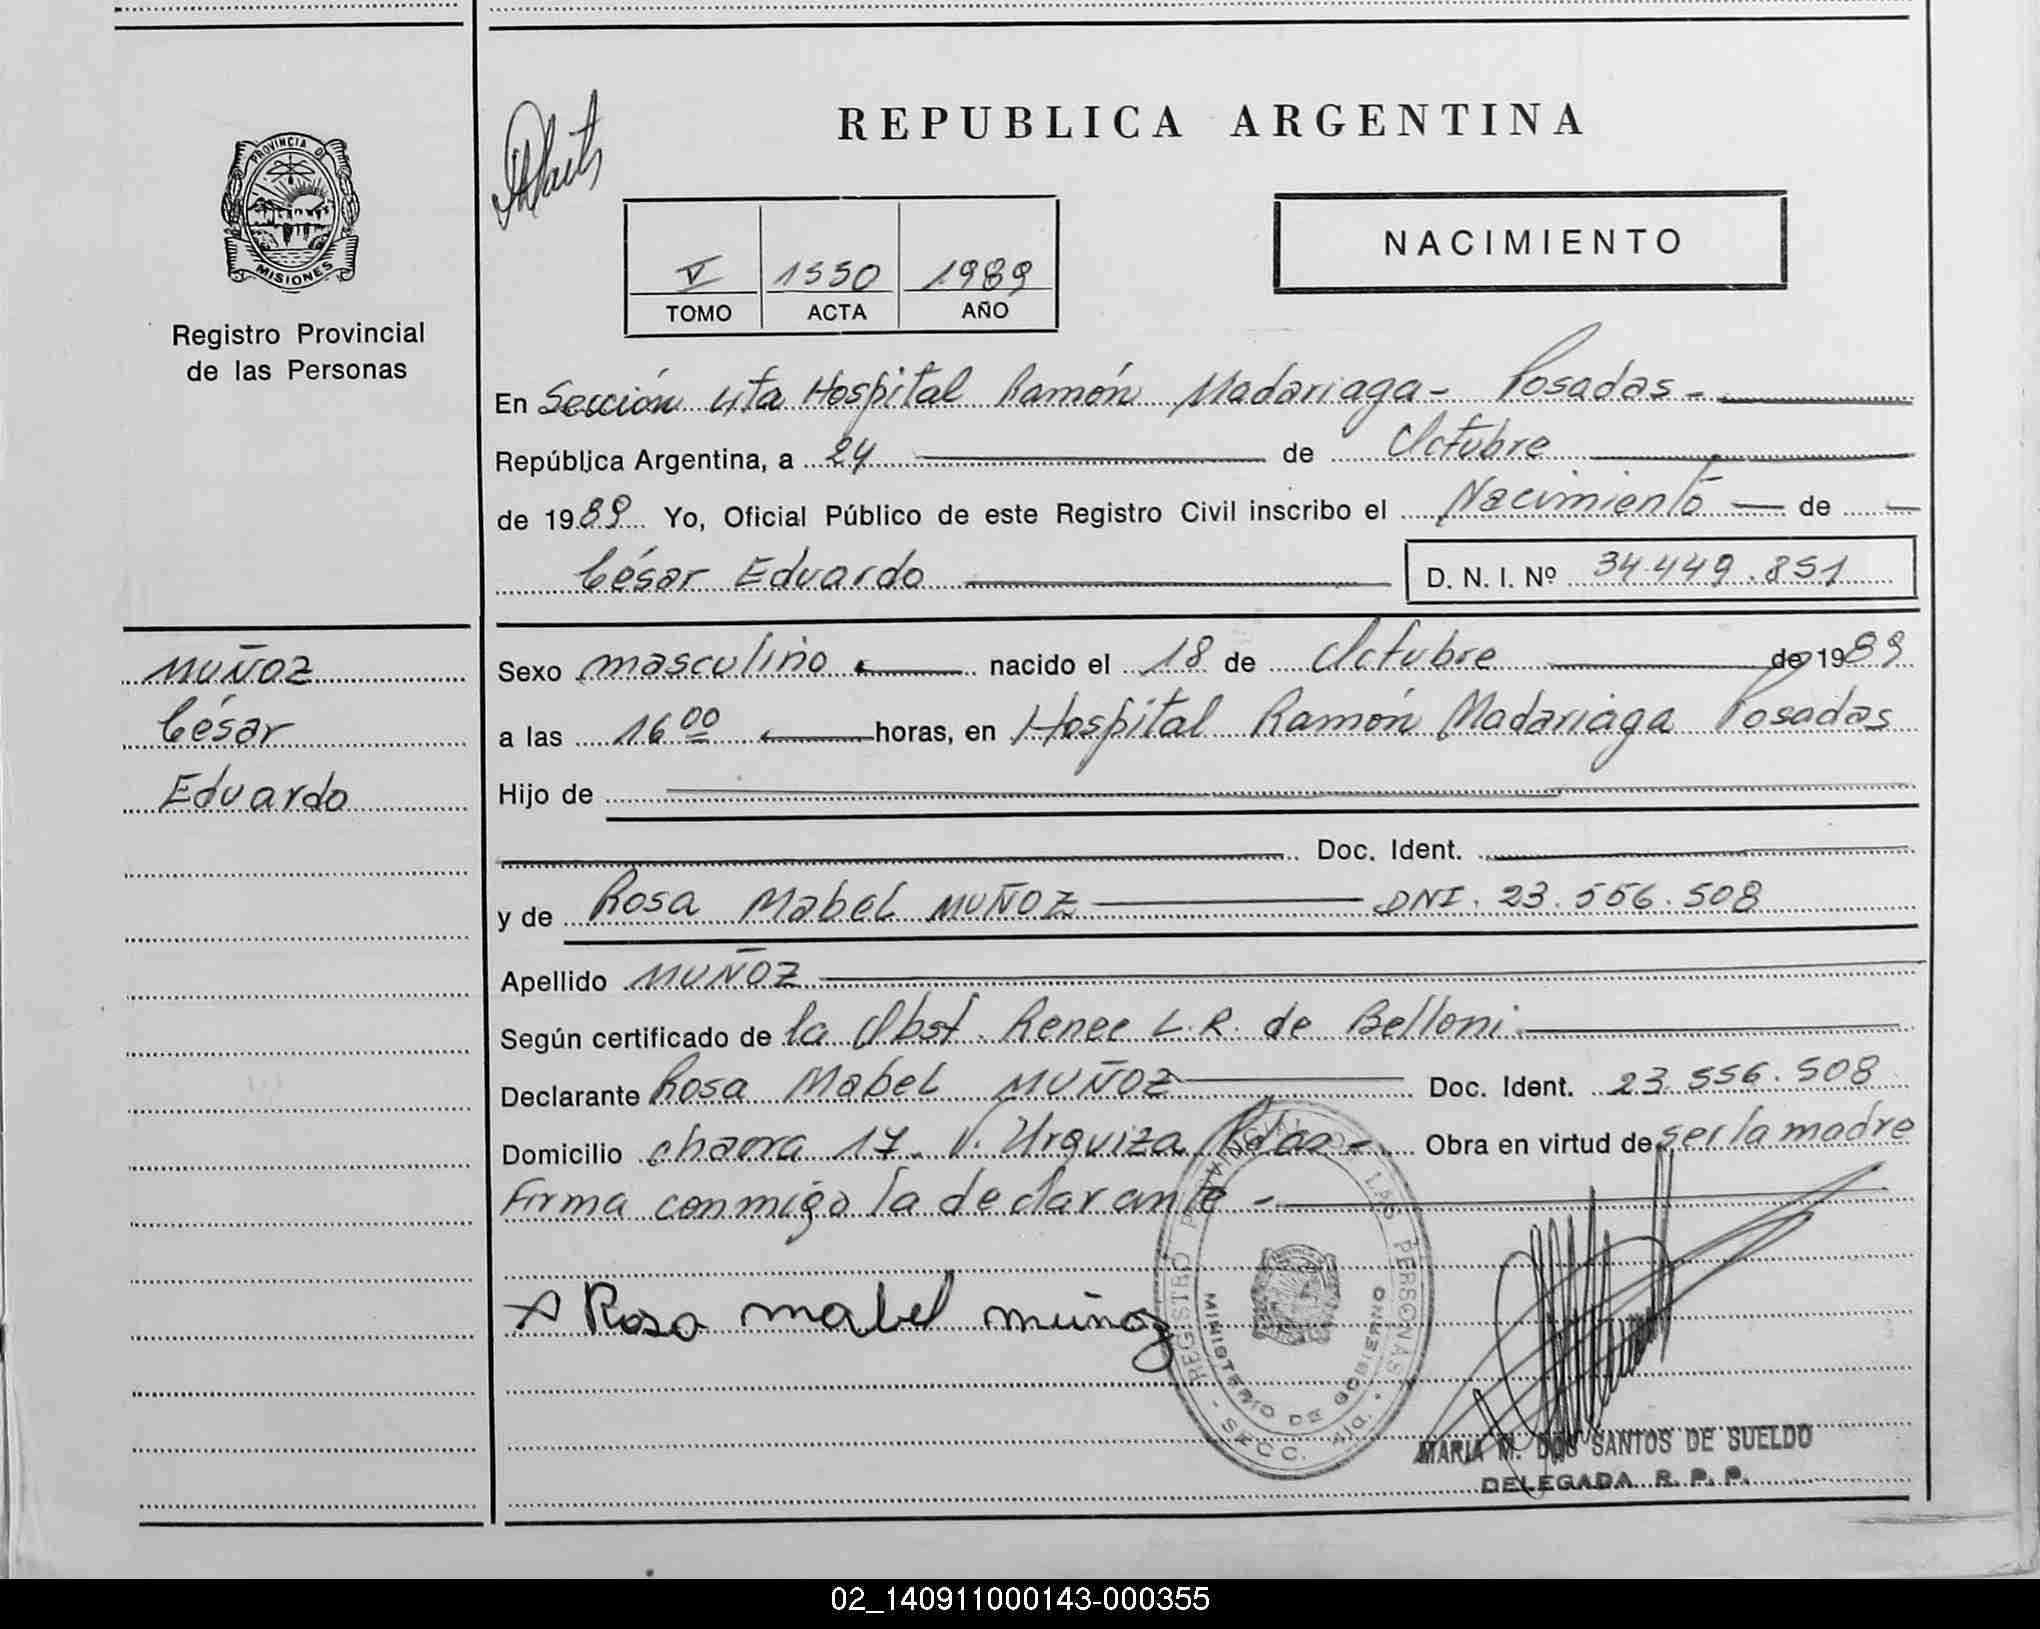 REPUBLICA ARGENTINA
PROVINCIA D
MISIONES
Registro Provincial
de las Personas
NACIMIENTO
V 1550 1989
TOMO ACTA AÑO
En Sección 4ta Hospital Ramón Madariaga - Posadas -
República Argentina, a 24 de Octubre
de 1989 Yo, Oficial Público de este Registro Civil inscribo el Nacimiento de
César Eduardo D. N. I. Nº 34.449.851
MUÑOZ
César
Eduardo
Sexo masculino nacido el 18 de Octubre de 1989
a las 16 00 horas, en Hospital Ramón Madariaga Posadas
Hijo de
Doc. Ident.
y de Rosa Mabel MUÑOZ DNI. 23.556.508
Apellido MUÑOZ
Según certificado de la Obst. Renee L.R. de Belloni
Declarante Rosa Mabel MUÑOZ Doc. Ident. 23.556.508
Domicilio chacra 17. V. Urquiza Pdas - Obra en virtud de ser la madre
Firma conmigo la declarante -
Rosa mabel muñoz
REGISTRO PROVINCIAL DE LAS PERSONAS
MINISTERIO DE GOBIERNO
SECC. 4ta.
MARIA M. DOS SANTOS DE SUELDO
DELEGADA R. P. P.
02_140911000143-000355